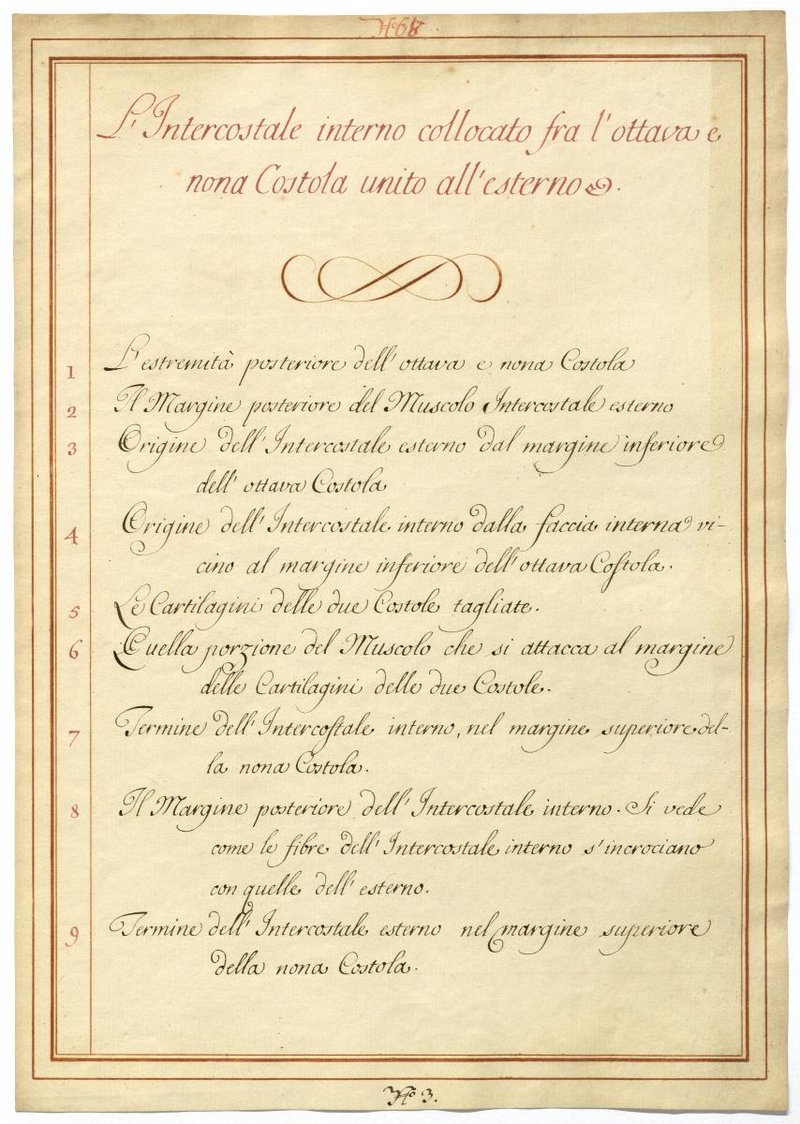 No 68
L'Intercostale interno collocato fra l'ottava e
nona Costola unito all'esterno.
1 L'estremità posteriore dell'ottava e nona Costola
2 Il Margine posteriore del Muscolo Intercostale esterno
3 Origine dell'Intercostale esterno dal margine inferiore
dell'ottava Costola
4 Origine dell'Intercostale interno dalla faccia interna vi-
cino al margine inferiore dell'ottava Coſtola.
5 Le Cartilagini delle due Costole tagliate.
6 Quella porzione del Muscolo che si attacca al margine
delle Cartilagini delle due Costole.
7 Termine dell'Intercoſtale interno, nel margine superiore del-
la nona Costola.
8 Il Margine posteriore dell'Intercostale interno. Si vede
come le fibre dell'Intercostale interno s'incrociano
con quelle dell'esterno.
9 Termine dell'Intercostale esterno nel margine superiore
della nona Costola.
No 3.